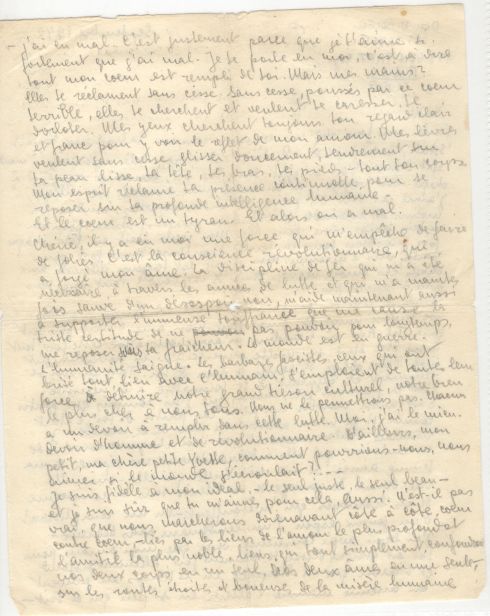 - j'ai eu mal. C'est justement parce que je t'aime si
fortement que j'ai mal. Je te porte en moi, c'est à dire
tout mon coeur est rempli de toi. Mais mes mains?
Elles te réclament sans cesse. Sans cesse, poussés par ce coeur
terrible, elles te cherchent et veulent te caresser, te
dorloter. Mes yeux cherchent toujours ton regard clair
et franc pour y voir le reflet de mon amour. Mes lèvres
veulent sans cesse glisser doucement, tendrement sur
ta peau lisse, ta tête, tes bras, tes pieds - tout ton corps.
Mon esprit réclame ta présence continuelle, pour se
reposer sur ta profonde intelligence humaine.
Et le coeur est un tyran. Et alors on a mal.
Chérie, il y a en moi une force qui m'empêche de faire
de folies. C'est la conscience révolutionnaire, qui
a forgé mon âme. La discipline de fer qui m'a été
nécéssaire à travers les années de lutte et qui m'a maintes
fois sauvé d'un désespoir noir, m'aide maintenant aussi
à supporter l'immense souffrance que me cause la
triste certitude de ne pas pouvoir, pour longtemps,
me reposer sur ta fraîcheur. Le monde est en guerre.
L'humanité saigne. Les barbares fascistes, ceux qui ont
brisé tout lien avec l'humain, s'emploient de toutes leurs
forces à détruire notre grand trésor culturel, notre bien
le plus cher à nous tous. Nous ne le permettrons pas. Chacun
a un devoir à remplir dans cette lutte. Moi, j'ai le mien.
devoir d'homme et de révolutionnaire. D'ailleurs, mon
petit, ma chère petite Yvette, comment pourrions-nous, nous
aimer si le monde s'écroulait?! - - -
Je suis fidèle à mon idéal - le seul juste, le seul beau -
et je suis sûr que tu m'aimes pour cela, aussi. N'est-il pas
vrai, que nous marcherons dorénavant côte à côte, coeur
contre coeur - liés par les liens de l'amour le plus profond et
l'amitié la plus noble, liens, qui tout simplement, confondront
nos deux corps en un seul, nos deux âmes en une seule -
sur les routes étroites et boueuses de la misère humaine